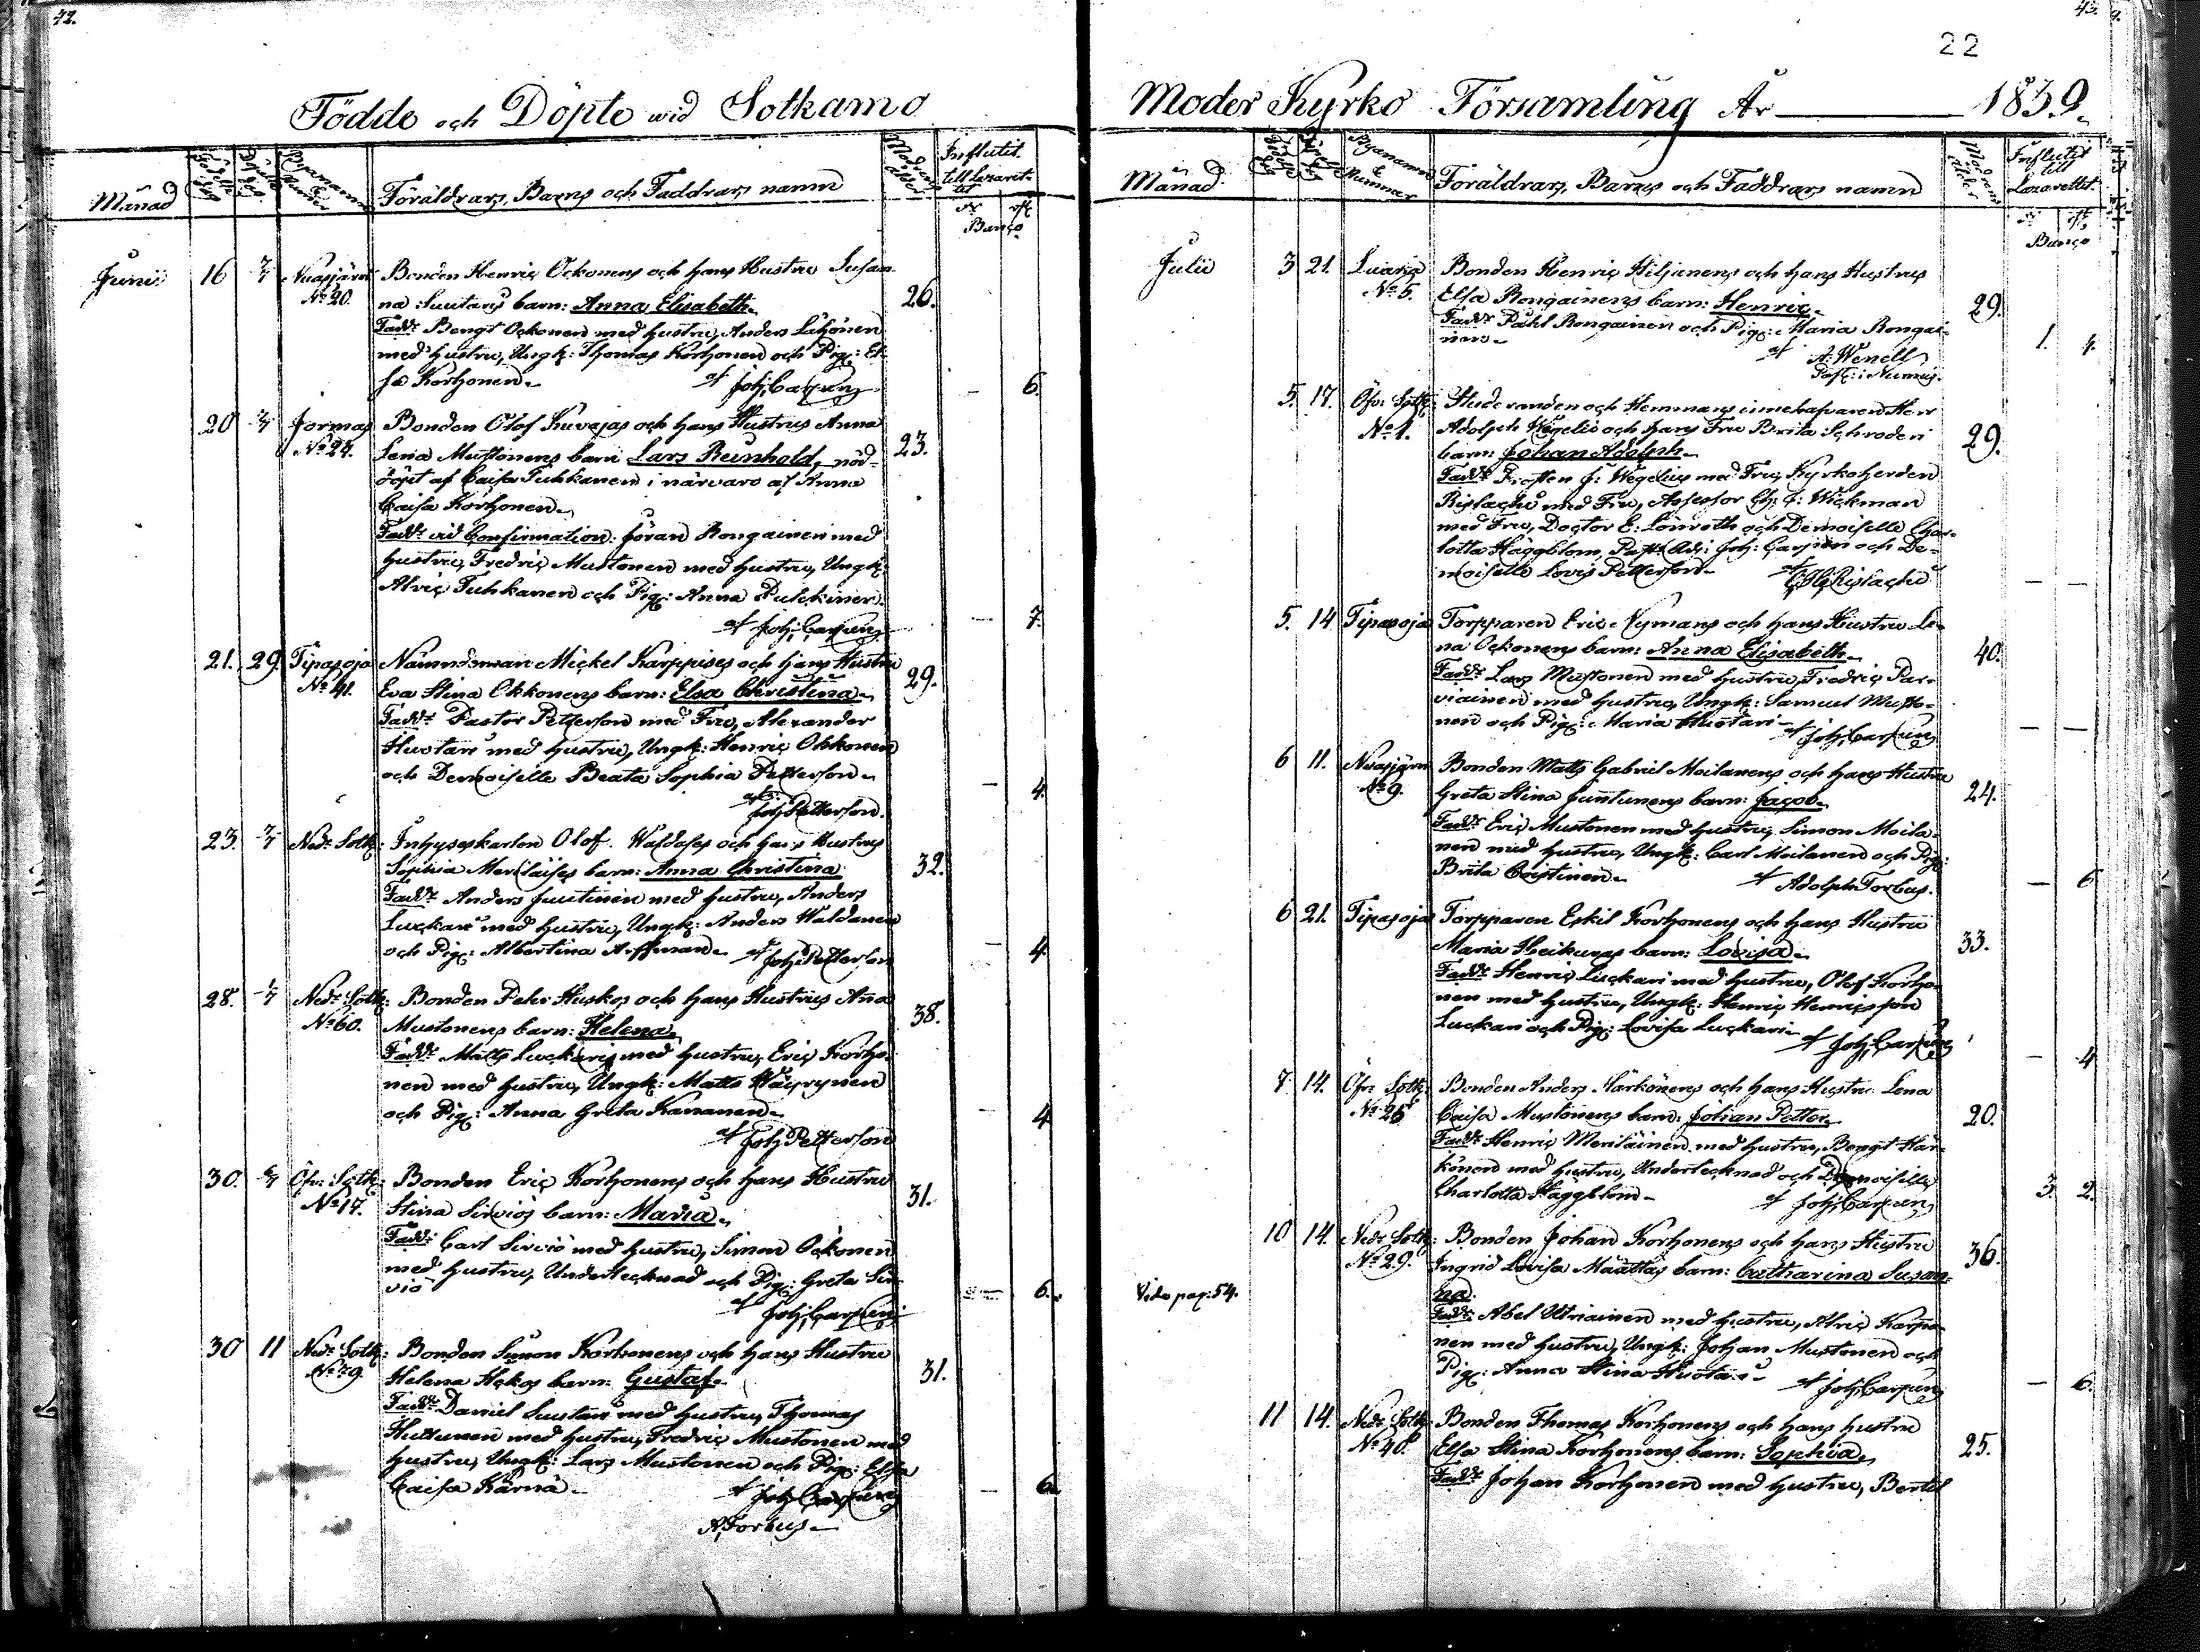 42.
Födde och Döpte wid Sotkamo
Månad
Föräldrars, Barns och Faddrars namn
Moders ålder
Influtit till Lazarettet
Banco
Junii 16 7/7 Nuasjärvi Bonden Henric Ockonens och hans Hustru Susan-
No 20. na Suutaris barn: Anna Elisabeth. 26.
Fadd: Bengt Ockonen med hustru, Anders
med hustru, Ungk: Thomas Korhonen och Pig: El-
sa Korhonen. af Joh: Carpén 6.
20 Jormas Bonden Olof Kuvajas och hans Hustrus Anna
No 24. Lena Mustonens barn Lars Reinhold, nöd- 23.
döpt af Caisa Tuhkanen i närvaro af Anna
Caisa Korhonen.
Fadd: vid Confirmation: Jöran Rongainen med
hustru, Fredric Mustonen med hustru, Ungk:
Alric Tuhkanen och Pig: Anna
af Joh: Carpén 7.
21. 29. Tipasoja Nämndeman Mickel Karppises och hans Hustru
No 41. Eva Stina Okkonens barn: Elsa Christina. 29.
Fadd: Pastor Petterson med Fru, Alexander
Huotari med hustru, Ungk: Henric Okkonen
och Demoiselle Beata Sophia Petterson. 4.
af Joh: Petterson.
23. Ned: Sotk: Inhyseskarlen Olof Waldases och hans Hustrus
Sophia barn: Anna Christina 32.
Fadd: Anders Juntunen med hustru, Anders
Luckari med hustru, Ungk: Anders Waldanen
och Pig: Albertina Arffman. af Joh: Petterson 4.
28. Ned: Sotk: Bonden Pehr Huskos och hans Hustrus Aña
No 60. Mustonens barn: Helena. 38.
Fadd: Matts Luckari med hustru, Eric Korho-
nen med hustru, Ungk: Matts Wäyrynen
och Pig: Anna Greta Kananen. 4
af Joh: Petterson
30. 6/7 Öfr: Sotk: Bonden Eric Korhonens och hans Hustru
No 17. Stina Sirviös barn: Maria. 31.
Fadd: Carl Sirviö med hustru, Simon Ockonen
med hustru, Undertecknad och Pig: Greta Sir-
viö 6.
af Joh: Carpén
30 11 Ned: Sotk: Bonden Simon Korhonens och hans Hustru
No 79. Helena barn: Gustaf. 31.
Fadd: Daniel med hustru, Thomas
Huttunen med hustru, Fredric Mustonen med
hustru, Ungk: Lars Mustonen och Pig: Elsa
Caisa Kärnä. af Joh: Carpén 6.
A. Forbus.
43.
22
Moder Kyrko Församling År 1839.
Månad
Byanamn & Nummer
Föräldrars, Barns och Faddrars namn
Moders ålder
Influtit till Lazarettet.
Banco
Julii 3 21. Bonden Henric Hiljanens och hans Hustrus
No 5. Elsa Rongainens barn: Henric. 29.
Fadd: Påhl Rongainen och Pig: Maria Rongai-
nen. 1. 4.
af A: Wenell
Past: i Nurmis.
5. 17. Öfr: Sotk: Studeranden och Hemmans innehafvaren Herr
No 1. Adolph Wegelii och hans Fru Brita Schroderi 29.
barn: Johan Adolph.
Fadd: Prosten J: Wegelius med Fru, Kyrkoherden
Rislachi med Fru, Assessor Ch: J: Wickman
med Fru, Doctor E: Lönroth och Demoiselle Char-
lotta Häggblom, Past: Adj: Joh: Carpén och De-
moiselle Lovis Petterson.
5. 14 Tipasoja Torpparen Eric Nymans och hans Hustru Le-
na Ockonens barn: Anna Elisabeth. 40.
Fadd: Lars Mustonen med hustru, Fredric Par-
viainen med hustru, Ungk: Samuel Musto-
nen och Pig: Maria Huotari. af Joh: Carpén
6 11. Nuasjärvi Bonden Matts Gabriel Moilanens och hans Hustru
No 9. Greta Stina Juntunens barn: Jacob. 24.
Fadd: Eric Mustonen med hustru, Simon Moila-
nen med hustru, Ungk: Carl Moilanen och Pig:
Brita af Adolph Forbus. 6
6 21. Tipasoja Torpparen Eskil Korhonens och hans Hustru
Maria Heikuras barn: Lovisa. 33.
Fadd: Henric Luckari med hustru, Olof Korho-
nen med hustru, Ungk: Henric Henricsson
Luckari och Pig: Lovisa Luckari. af Joh: Carpén 4
7 14. Öfr: Sotk: Bonden Anders Härkönens och hans Hustru Lena
No 25 Caisa Mustonens barn: Johan Petter. 20.
Fadd: Henric Meriläinen med hustru, Bengt Här-
könen med hustru, Undertecknad och Demoiselle
Charlotta Häggblom. af Joh: Carpén 3. 2.
10 14. Ned: Sotk: Bonden Johan Korhonens och hans Hustru
No 29. Ingrid Lovisa Määttäs barn: Catharina Susan- 36.
Vide pag: 54. na.
Fadd: Abel Utriainen med hustru, Alric
nen med hustru, Ungk: Johan Mustonen och
Pig: Anna Stina Huotari af Joh: Carpén 6.
11 14. Ned: Sotk: Bonden Thomas Korhonens och hans hustru
No 40. Elsa Stina Korhonens barn: Sophia. 25.
Fadd: Johan Korhonen med hustru, Bertil